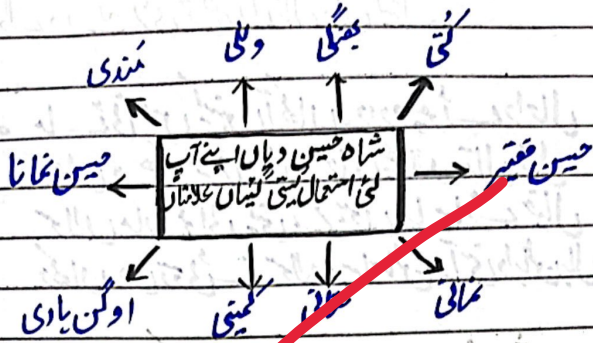 کُتّی
بھنگی
وللی
مَندی
شاہ حسین دیاں اپنے آپ
لئی استعمال کیتی گئیاں علامتاں
حسین فقیر
حسین نمانا
نمانی
کمینی
اوگن ہاری